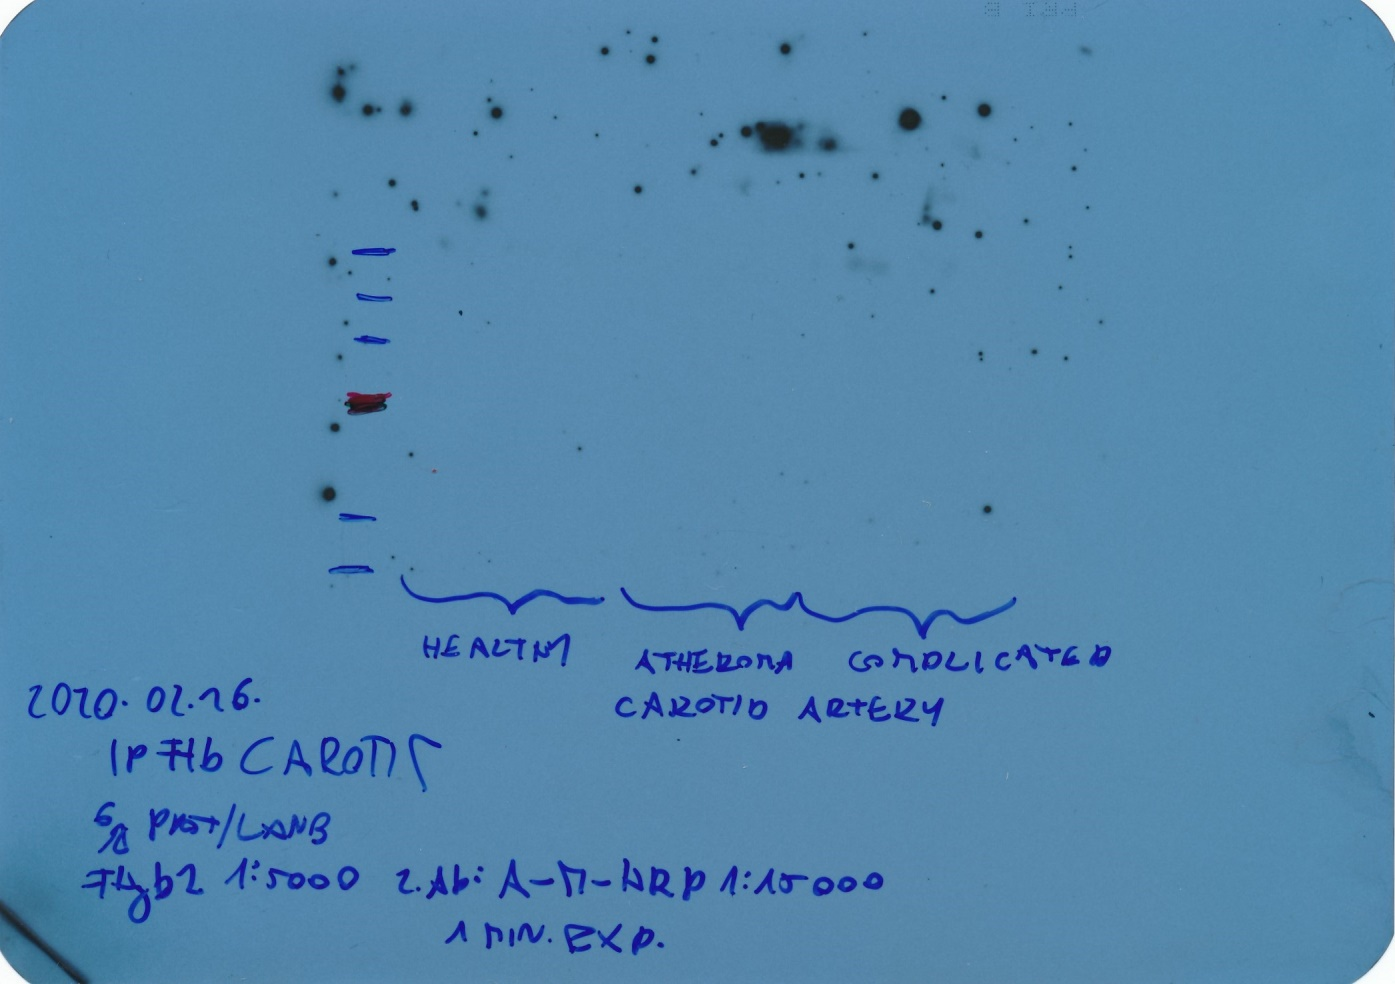 HEALTHY
ATHEROMA COMPLICATED
CAROTID ARTERY
2020. 02. 16.
CAROTIS
PROT/LANE
1:5000 2. Ab: A-M-HRP 1:15000
1 MIN. EXP.